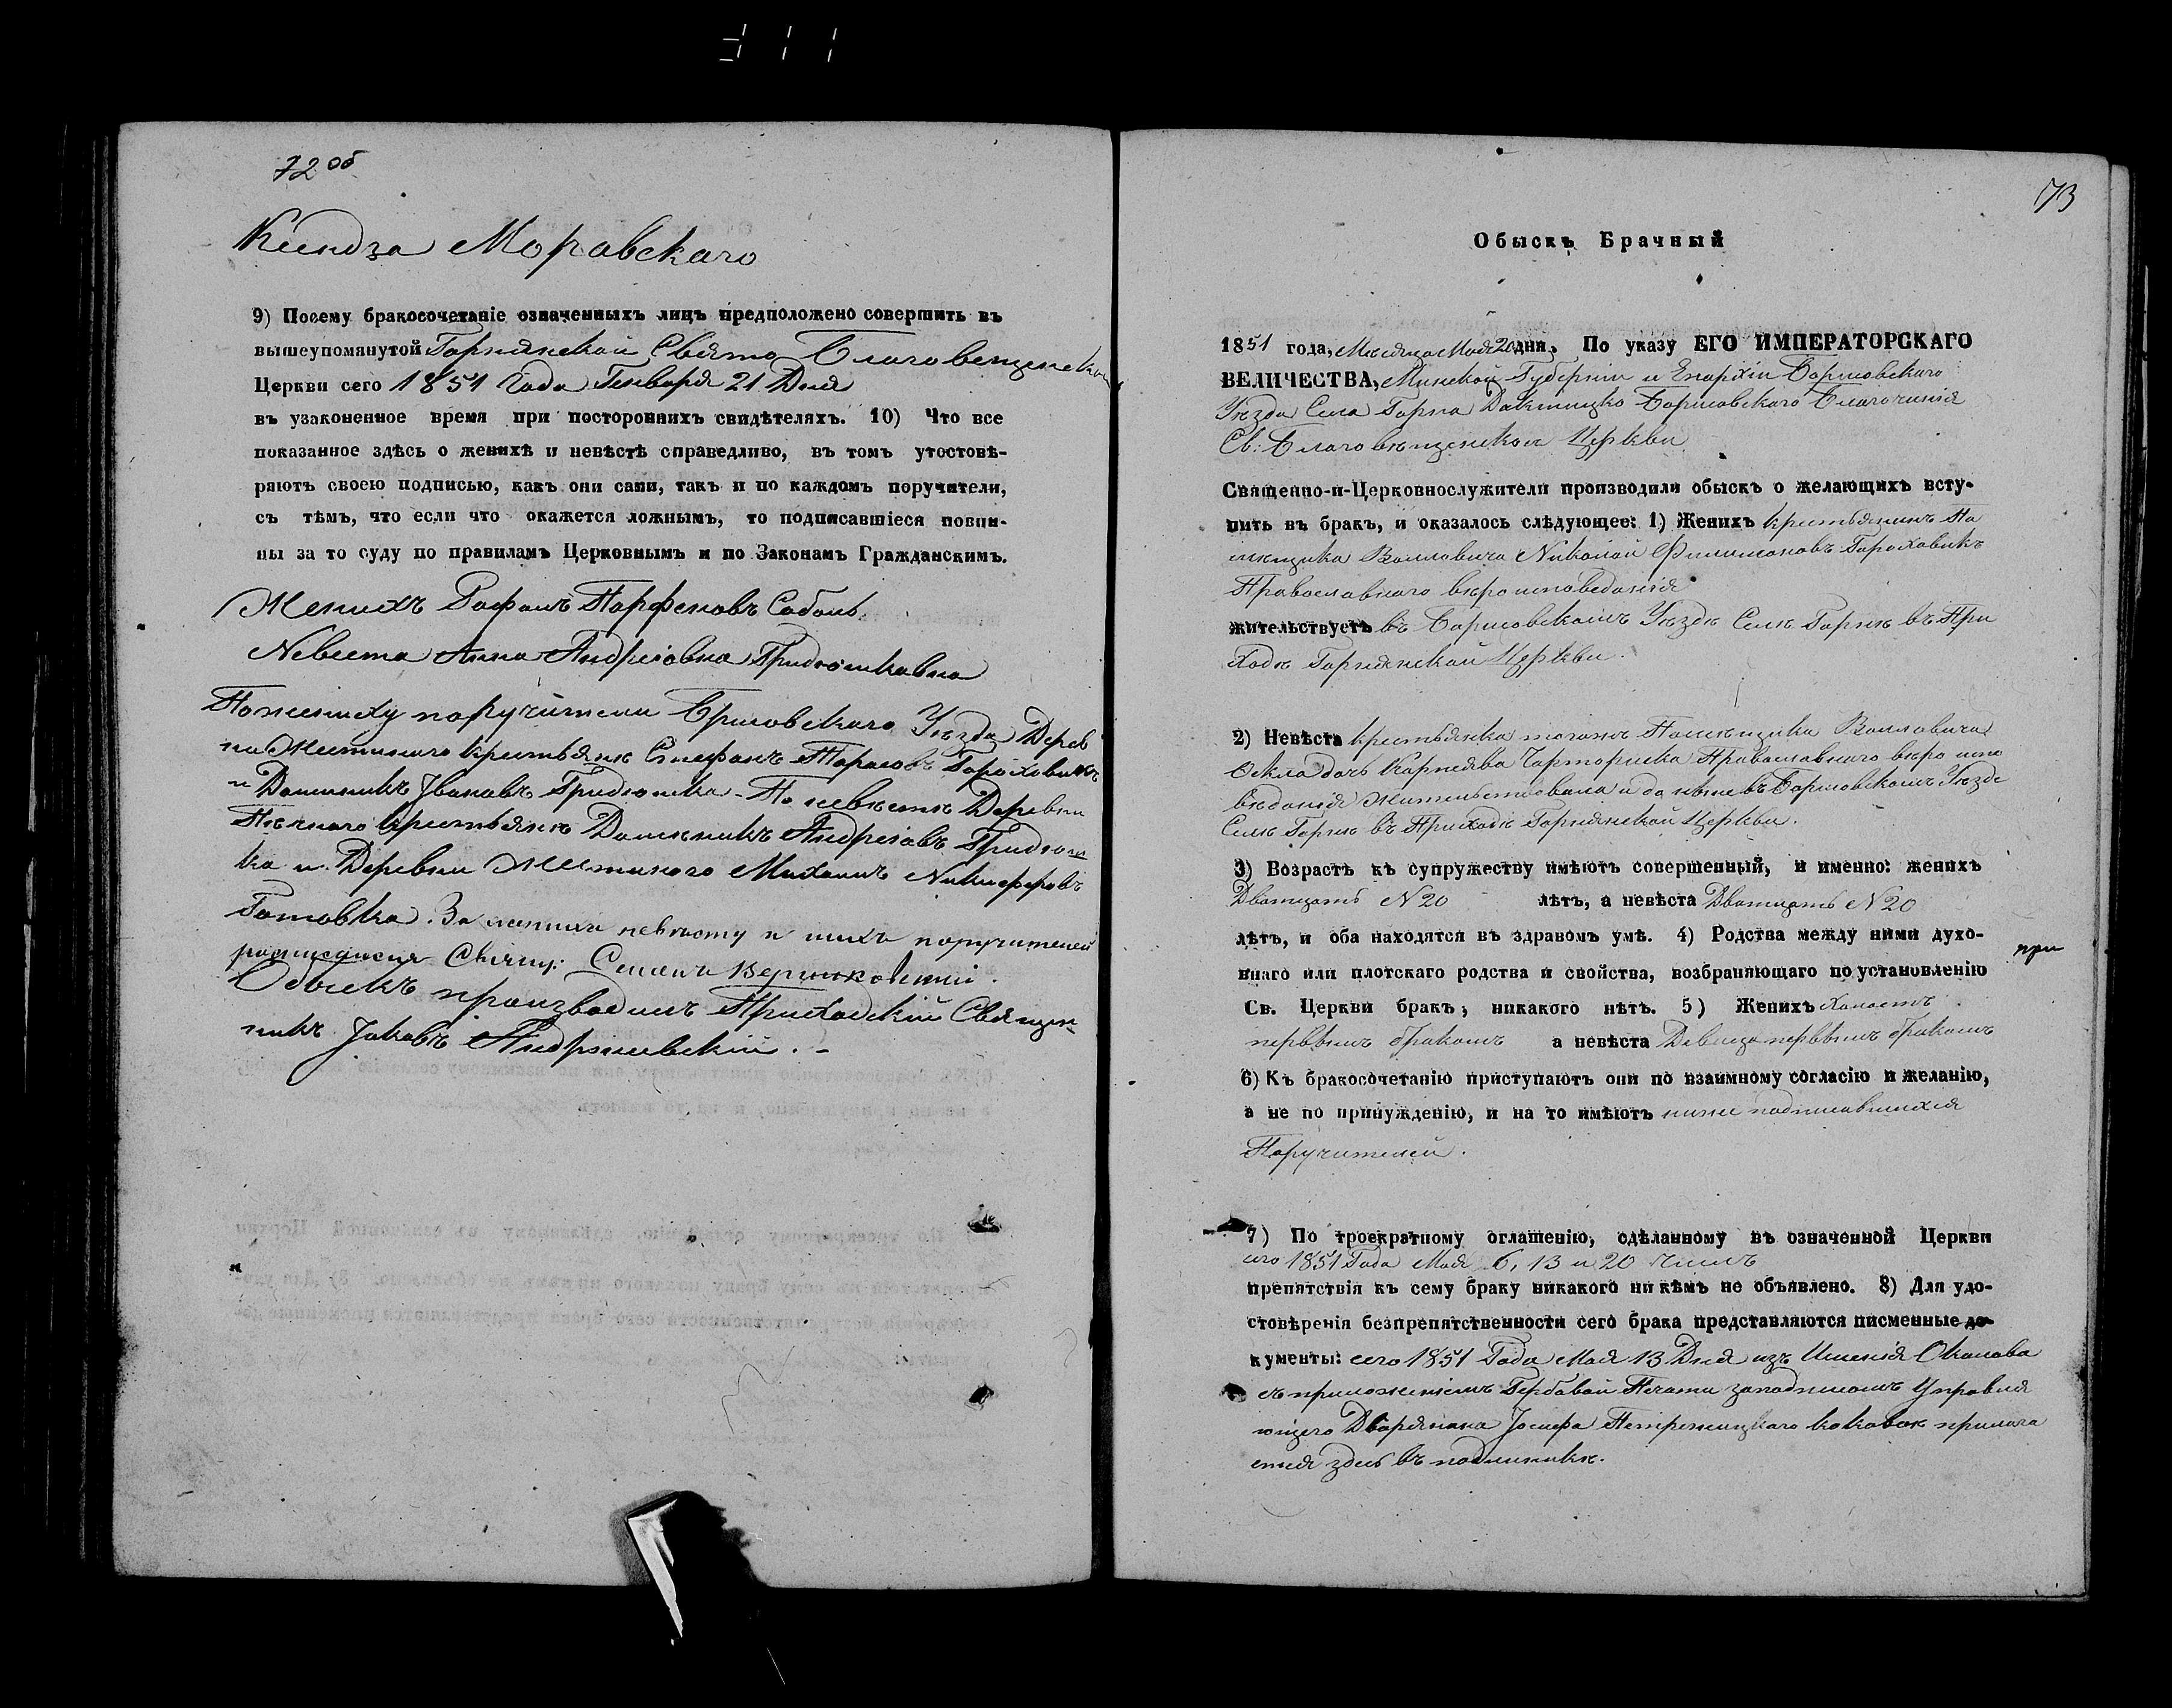 72 об
Ксендза Моравскаго
9) Посему бракосочетаніе означенныхъ лицъ предположено совершить въ
вышеупомянутой Горнянской Свято Благовещенской
Церкви сего 1851 Года Генваря 21 Дня
въ узаконенное время при постороннихъ свидѣтеляхъ. 10) Что все
показанное здѣсь о женихѣ и невѣстѣ справедливо, въ томъ утостовѣ-
ряютъ своею подписью, какъ они сами, такъ и по каждомъ поручители,
съ тѣмъ, что если что окажется ложнымъ, то подписавшіеся повин-
ны за то суду по правиламъ Церковнымъ и по Законамъ Гражданскимъ.
Женихъ Парфеновъ Соболь.
Невеста Анна Андреіовна Гридюшковна
По жениху поручители Борисовскаго Уѣзда Дерев
ни крестьяне Стефанъ Тарасовъ Гороховикъ
и Доминикъ Івановъ Гридюшка. По невѣсте Деревни
крестьяне Доменикъ Андреіовъ Гридюш
ка и Деревни Михаилъ Никифоровъ
За жениха невѣсту и ихъ поручителей
росписался Семенъ
Обыскъ производилъ Приходскій Священ
никъ Јаковъ Андржиевскій. -
73
Обыскъ Брачный
1851 года, Месяца Мая 20 дня. По указу ЕГО ИМПЕРАТОРСКАГО
ВЕЛИЧЕСТВА, Минской Губерніи и Епархіи Борисовскаго
Уѣзда Села Горна Докшицко Борисовскаго Благочинія
Св: Благовѣщенской Церкви
Священно-и-Церковнослужители производили обыскъ о желающихъ всту-
пить въ бракъ, и оказалось слѣдующее: 1) Женихъ крестьянинъ По
мещика Воиловича Николай Филимоновъ Гороховикъ
Православнаго вѣроисповеданія
жительствуетъ въ Борисовскомъ Уѣзде Селе Горне въ При
ходе Горнянской Церкви.
2) Невѣста крестьянка тогожъ Помещика Воиловича
Фекла дочь Карнеява Чарториска Православнаго вѣро испо
вѣданія жительствовала и до ныне въ Борисовскомъ Уѣзде
Селе Горне въ Приходе Горнянской Церкви.
3) Возрастъ къ супружеству имѣютъ совершенный, и именно: женихъ
Дватцать N 20 лѣтъ, а невѣста Дватцать N 20
лѣтъ, и оба находятся въ здравомъ умѣ. 4) Родства между ними духо-
внаго или плотскаго родства и свойства, возбраняющаго по установленію
при
Св. Церкви бракъ, никакого нѣтъ. 5) Женихъ холостъ
первымъ бракомъ а невѣста Девица первымъ бракомъ
6) Къ бракосочетанію приступаютъ они по взаимному согласію и желанію,
а не по принужденію, и на то имѣютъ ниже подписавшихся
Поручителей.
7) По троекратному оглашенію, сдѣланному въ означенной Церкви
сего 1851 Года Мая 6, 13 и 20 чиселъ
препятствія къ сему браку никакого ни кѣмъ не объявлено. 8) Для удо-
стовѣренія безпрепятственности сего брака представляются писменные до-
кументы: сего 1851 Года Мая 13 Дня изъ Именія Околова
съ приложеніемъ Гербовой Печати заподписомъ Управля
ющего Дворянина Јосифа коковое прилога
ется здесь въ подлиннике.